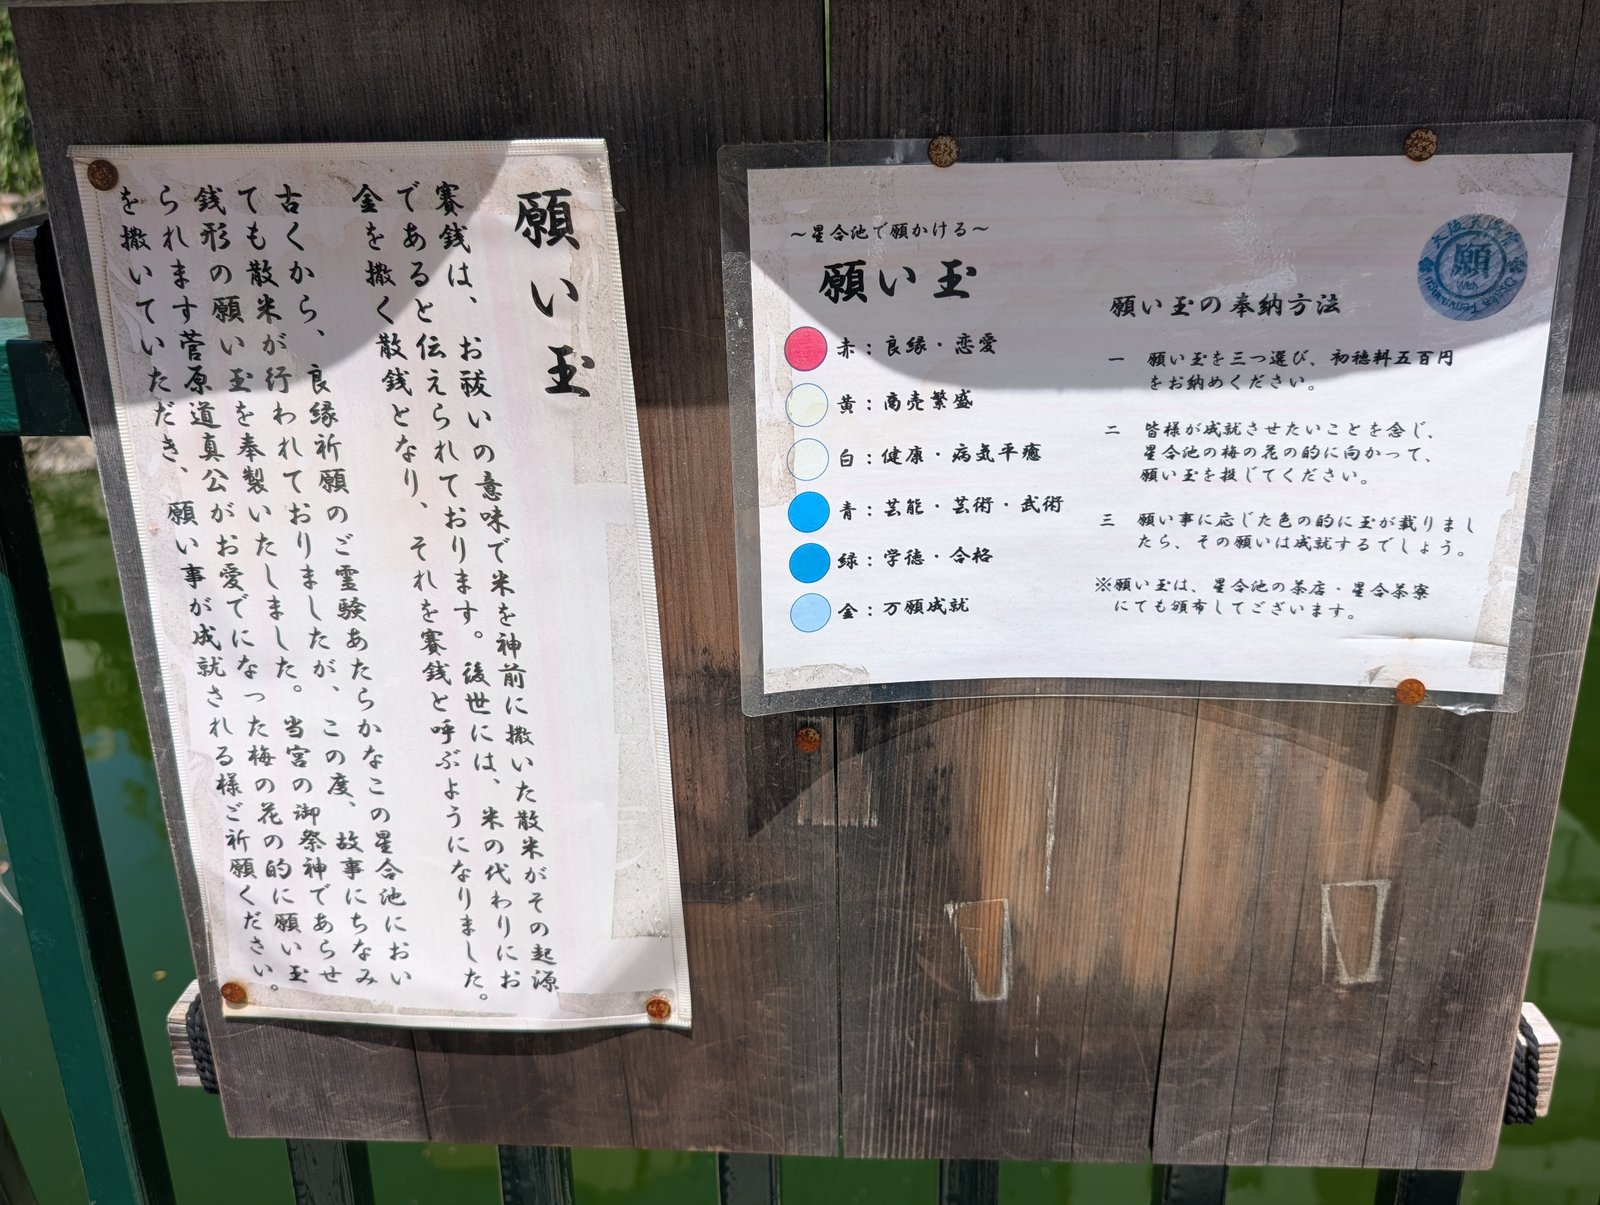 願い玉
賽銭は、お祓いの意味で米を神前に撒いた散米がその起源
であると伝えられております。後世には、米の代わりにお
金を撒く散銭となり、それを賽銭と呼ぶようになりました。
古くから、良縁祈願のご霊験あたらかなこの星合池におい
ても散米が行われておりましたが、この度、故事にちなみ
銭形の願い玉を奉製いたしました。当宮の御祭神であらせ
られます菅原道真公がお愛でになった梅の花の的に願い玉
を撒いていただき、願い事が成就される様ご祈願ください。
～星合池で願かける～
願い玉
赤：良縁・恋愛
黄：商売繁盛
白：健康・病気平癒
青：芸能・芸術・武術
緑：学徳・合格
金：万願成就
大阪天満宮
願
Osaka Temmangu
願い玉の奉納方法
一 願い玉を三つ選び、初穂料五百円
をお納めください。
二 皆様が成就させたいことを念じ、
星合池の梅の花の的に向かって、
願い玉を投じてください。
三 願い事に応じた色の的に玉が載りまし
たら、その願いは成就するでしょう。
※願い玉は、星合池の茶店・星合茶寮
にても頒布してございます。